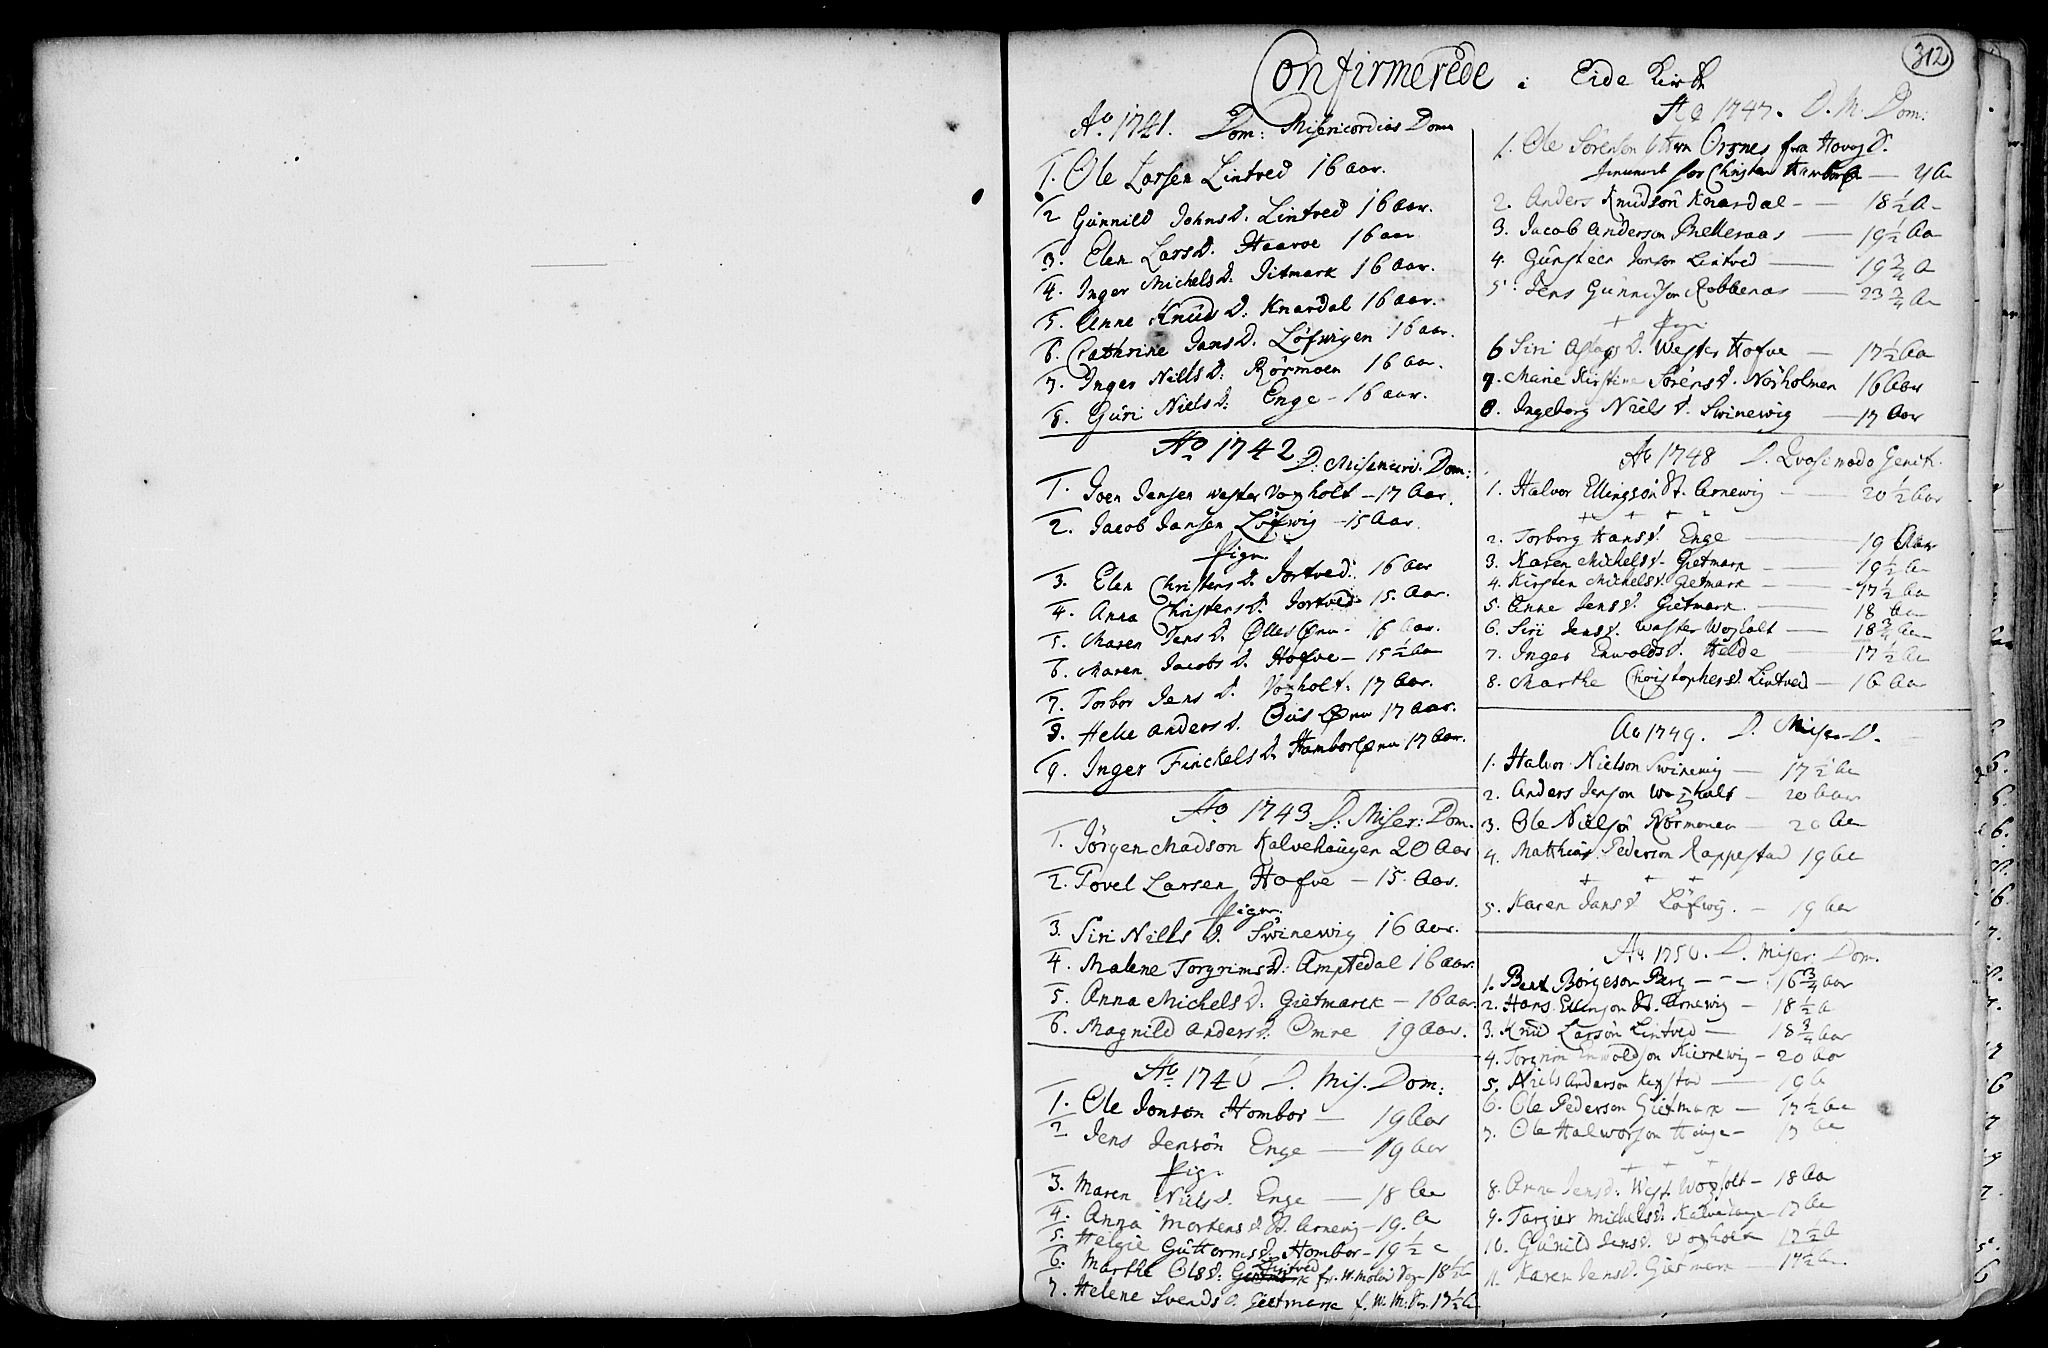 312
Confirmerede i Eide Kirch
Ao. 1741. Dom: Misericordias Dom
1. Ole Larsen Lintved 16 aar.
2 Gunnild Johnsd. Lintved 16 aar.
3. Elen Larsd. Haave 16 aar
4. Inger Michelsd. Jitmark 16 aar.
5. Anne Knudsd: Knardal 16 aar.
6. Cathrine Jansd. Löfwigen 16 aar.
7. Inger Nillsd: Rörmoen 16 aar.
8. Guri Nielsd: Enge - 16 aar.
Ao 1742. D: Misericord. Dom:
1. Joen Jensen wester Voxholt - 17 aar.
2. Jacob Jansen Löfwig - 15 aar.
Pigr.
3. Elen Christensd. Jortved. 16 aar
4. Anna Christensd. Jortved. 15. aar.
5. Maren Jensd. Ølles Ørn - 16 aar.
6. Maren Jacobsd. Hofve - 15 1/2 aar
7. Torbor Jensd. Voxholt. 17 aar.
8. Helie Andersd. Ørn 17 aar.
9. Inger Finckelsd. 17 aar.
Ao 1743. D: Miser: Dom.
1. Jörgen Madson Kalvehaugen 20 aar
2. Povel Larsen Hofve - 15. aar.
Pigr.
3. Siri Nillsd. Swinewig 16 aar.
4. Malene Torgrimsd: Amptedal 16 aar.
5. Anna Michelsd. Gietmarck - 16 aar.
6. Magnild Andersd: Omre 19 aar.
Ao. 1746 D. Mis. Dom:
1. Ole Jonson Hombor - 19 aar
2 Jens Jensön Enge - 19 aar
Pig.
3. Maren Nielsd. Enge - 18 Aa
4. Anna Mortensd. St. Arnewig - 19. a
5. Helgie Guttormsd. Hombor - 19 1/2 a
6. Marthe Olsd. Lintved 18 1/2
7. Helene Svendsd. Gietmark 17 1/2 a
Ao 1747. D. M. Dom:
1. Ole Sörenson fra Hovog S.
for Christen
2. Anders Knudsön Knardal - 18 1/2 A
3. Jacob Anderson - 19 1/2 Aa
4. Gunsteen Jonson Lintved - 19 3/4 A
5. Jens Robbenas - 23 3/4 Aa
+ Pigr
6 Siri Aslagsd. Wester Hofve - 17 1/2 Aa
7. Marie Kirstine Sörensd. Norholmen 16 Aar
8. Ingeborg Nielsd. Swinewig - 17 Aar
Ao 1748 D. Qvasimodo Genit.
1. Halvor Ellingsön St. Arnewig - 20 1/2 aar
+ + +
2. Torborg Hansd. Enge - 19 Aar
3. Karen Michelsd. Gietmark - 19 1/2 Aa
4. Kirsten Michelsd. Gietmark - 17 1/2 Aa
5. Anne Jensd. Gietmark. - 18 Aa
6. Siri Jensd. Wester Woxholt - 18 3/4 Aa
7. Inger Enwoldsd. Helde - 17 1/2 Aa
8. Marthe Christophersd. Lintved - 16 Aar
Ao 1749. D. Mise. D.
1. Halvor Nielson Swinewig - 17 1/2 Aa
2. Anders Jenson Woxholt - 20 Aar
3. Ole Nielsön Rörmonen - 20 Aa
4. Matthias Pederson Rappestad 19 Aa
+ + +
5. Karen Jansd. Löfwig. - 19 aar
Ao 1750. D. Miser: Dom.
1. Bent Börgeson Berg - - - 16 3/4 aar
2. Hans Ellingson St. Arnewig - 18 1/2 A
3. Knud Larsön Lintved - 18 3/4 aar
4. Torgrim Enwoldson Kierrewig - 20 Aar
5. Niels Anderson - 19 A
6. Ole Pederson Gietmark - 17 1/2 Aa
7. Ole Halworson Hauge - 17 Aa
+ + +
8. Anne Jensd. West. Woxholt - 18 Aa
9. Torgier Michelsd. Kalvehauge - 17 Aa
10. Gunild Jensd. Woxholt 17 1/2 A
11. Karen Jensd. Gietmark - 17 1/2 Aa.